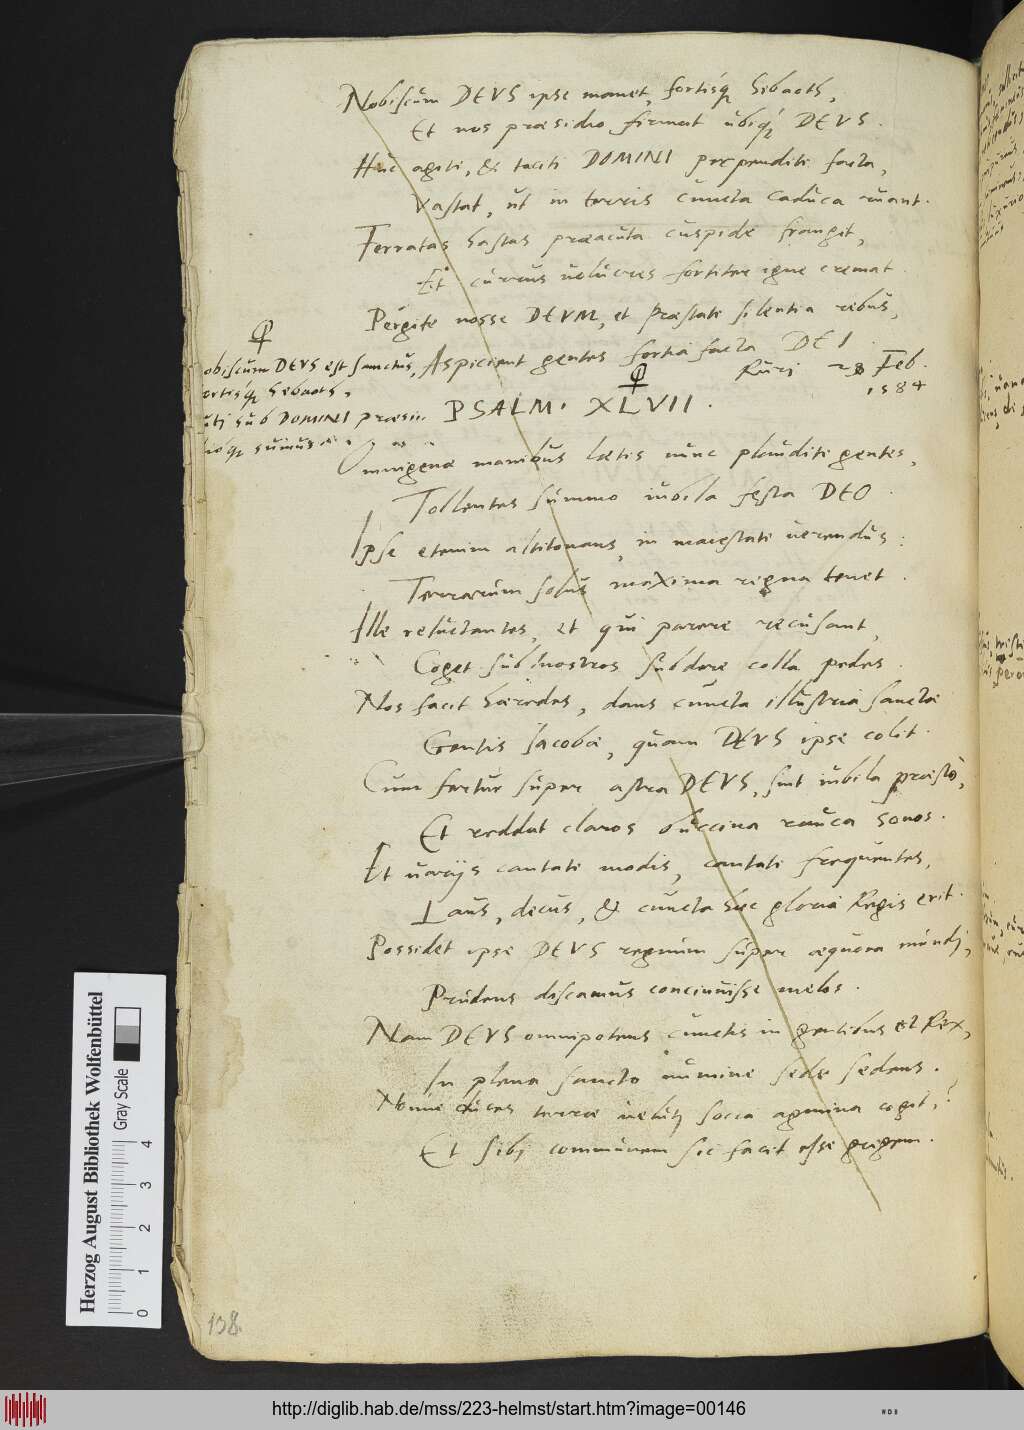 Nobiscum DEUS ipse manet, fortisq́ Sebaoth,
Et nos præsidio firmat ubiq́ DEVS.
Huc agite, & taciti DOMINI perpendite facta,
Vastat, ut in terris cuncta caduca ruant.
Ferratas hastas præacuta cuspide frangit,
Et currus uolucres fortiter igne cremat.
Pergite nosse DEVM, et præstate silentia rebus,
Aspicient gentes fortia facta DEI.
Ruri 28 Feb.
1584
obiscum DEUS est sanctus,
ortisq́ Sebaoth,
uti sub DOMINI præsi
sumus
PSALM. XLVII.
Omnigenæ manibus lætis nunc plaudite gentes,
Tollentes summo iubila festa DEO.
Ipse etenim altitonans, in maiestate uerendus:
Terrarum solus maxima regna tenet.
Ille reluctantes, et qui parere recusant,
Coget sub nostros subdere colla pedes.
Nos facit hæredes, dans cuncta illustria sanctæ
Gentis Iacobæ, quam DEUS ipse colit.
Cum fertur super astra DEUS, sint iubila præsto,
Et reddat claros buccina rauca sonos.
Et uarijs cantate modis, cantate frequentes,
Laus, decus, & cuncta hæc gloria Regis erit.
Possidet ipse DEVS regnum super æquora mundj,
Prudens discamus concinuisse melos.
Nam DEVS omnipotens cunctis in gentibus est Rex,
In plena sancto numine sede sedens.
Nonne duces terræ uelutj socia agmina cogit,?
Et sibj communem sic facit esse gregem.
138.
Herzog August Bibliothek Wolfenbüttel
Gray Scale
0 1 2 3 4
http://diglib.hab.de/mss/223-helmst/start.htm?image=00146